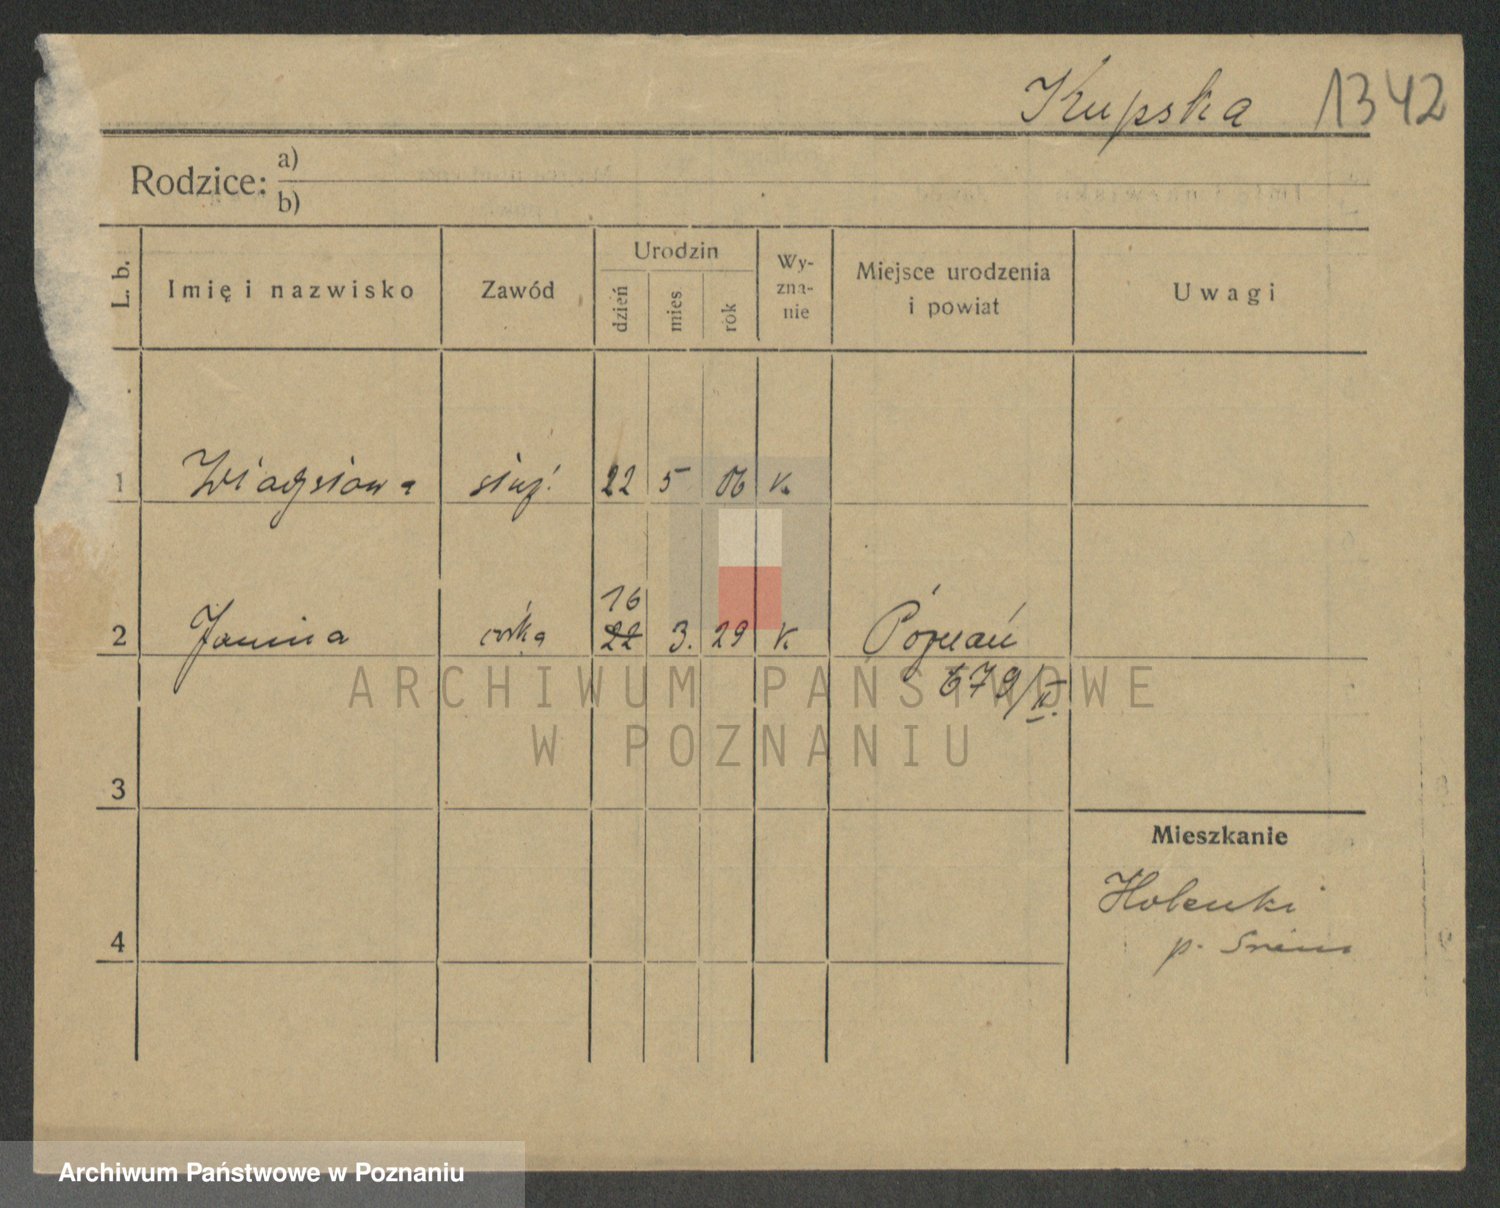 Kupska 1342
Rodzice: a)
b)
L. b.
Imię i nazwisko
Zawód
Urodzin
dzień
mies
rok
Wy-
zna-
nie
Miejsce urodzenia
i powiat
Uwagi
1 służ. 22 5 06 k.
16
2 Janina córka 22 3. 29 k. Poznań
679/II.
3
4
Mieszkanie
p. Śrem
ARCHIWUM PAŃSTWOWE
W POZNANIU
Archiwum Państwowe w Poznaniu